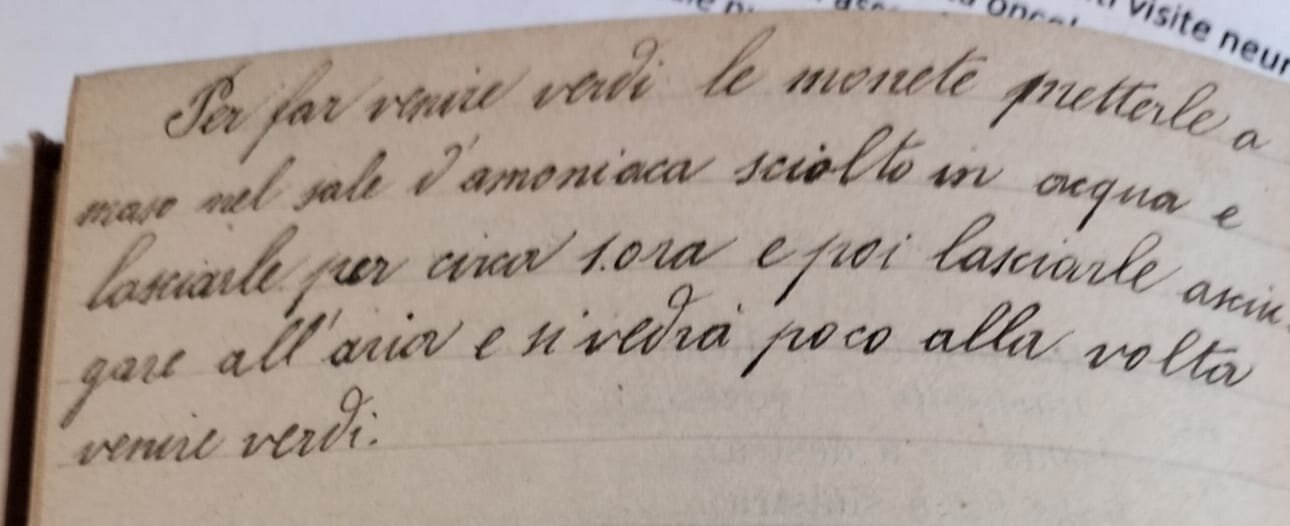 visite neur
Per far venire verdi le monete metterle a
maso nel sale d'amoniaca sciolto in acqua e
lasciarle per circa 1.ora e poi lasciarle asciu-
gare all'aria e si vedrà poco alla volta
venire verdi.